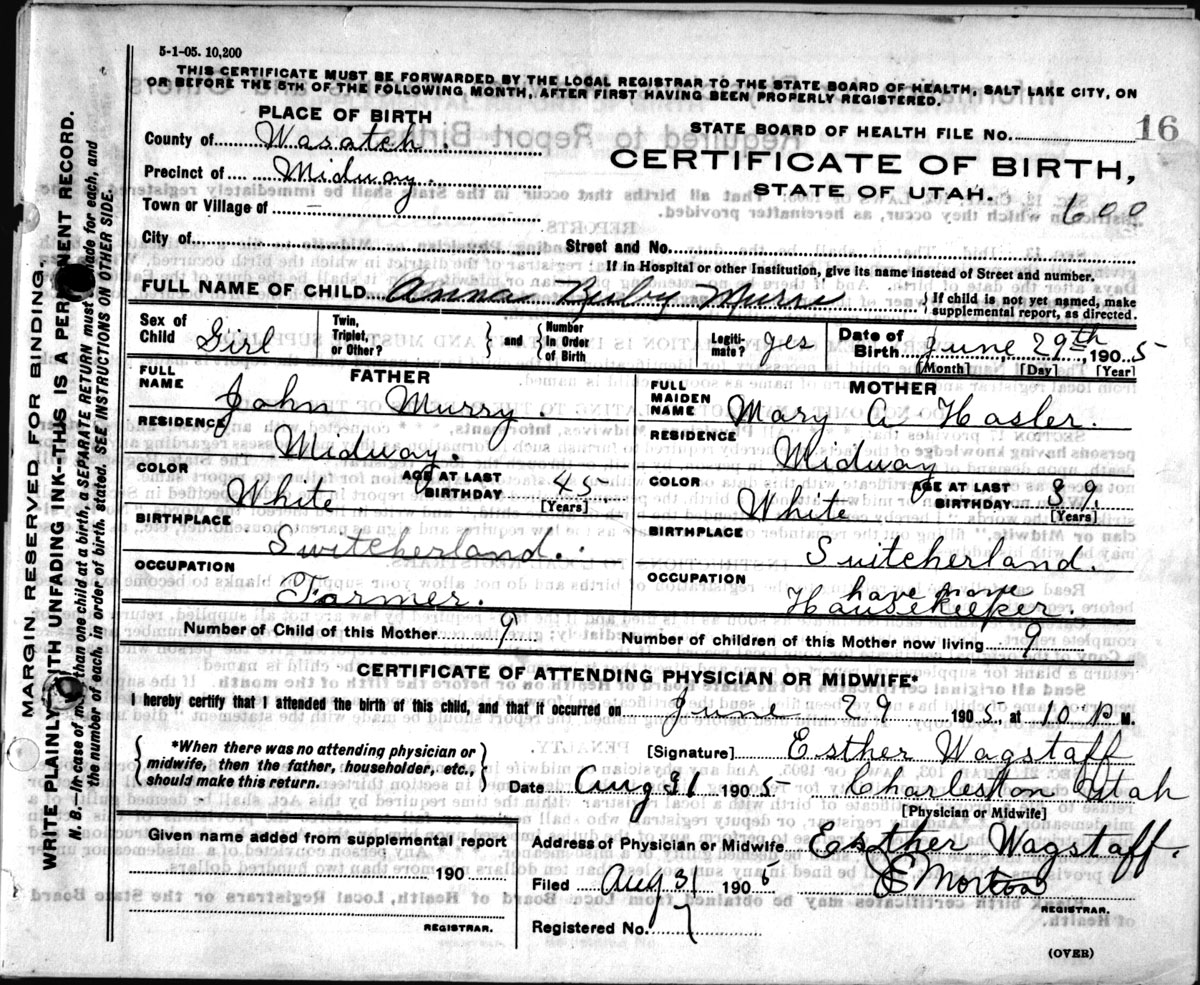 5-1-05. 10,200
THIS CERTIFICATE MUST BE FORWARDED BY THE LOCAL REGISTRAR TO THE STATE BOARD OF HEALTH, SALT LAKE CITY, ON
OR BEFORE THE 5TH OF THE FOLLOWING MONTH, AFTER FIRST HAVING BEEN PROPERLY REGISTERED.
PLACE OF BIRTH
County of Wasatch.
Precinct of Midway.
Town or Village of –
City of
STATE BOARD OF HEALTH FILE NO. 16
CERTIFICATE OF BIRTH,
STATE OF UTAH.
600
Street and No.
If in Hospital or other Institution, give its name instead of Street and number.
FULL NAME OF CHILD Anna Ruby Murri
If child is not yet named, make
supplemental report, as directed.
Sex of Child Girl
Twin, Triplet, or Other?
and Number in Order of Birth
Legiti-mate? Yes
Date of Birth June 29th, 1905
[Month] [Day] [Year]
FATHER
FULL NAME John Murry.
RESIDENCE Midway.
COLOR White
AGE AT LAST BIRTHDAY 45
[Years]
BIRTHPLACE Switcherland.
OCCUPATION Farmer.
MOTHER
FULL MAIDEN NAME Mary A Hasler.
RESIDENCE Midway
COLOR White
AGE AT LAST BIRTHDAY 39.
[Years]
BIRTHPLACE Suitcherland.
OCCUPATION have more
Housekeeper.
Number of Child of this Mother 9
Number of children of this Mother now living 9
CERTIFICATE OF ATTENDING PHYSICIAN OR MIDWIFE*
I hereby certify that I attended the birth of this child, and that it occurred on June 29 1905, at 10 P M.
*When there was no attending physician or
midwife, then the father, householder, etc.,
should make this return.
[Signature] Esther Wagstaff
Date Aug 31 1905 Charleston Utah
[Physician or Midwife]
Given name added from supplemental report
190
REGISTRAR.
Address of Physician or Midwife Esther Wagstaff.
Filed Aug 31 1905
Morton
REGISTRAR.
Registered No. 7
(OVER)
MARGIN RESERVED FOR BINDING
WRITE PLAINLY WITH UNFADING INK—THIS IS A PERMANENT RECORD.
N. B.—In case of more than one child at a birth, a SEPARATE RETURN must be made for each, and
the number of each, in order of birth, stated. SEE INSTRUCTIONS ON OTHER SIDE.